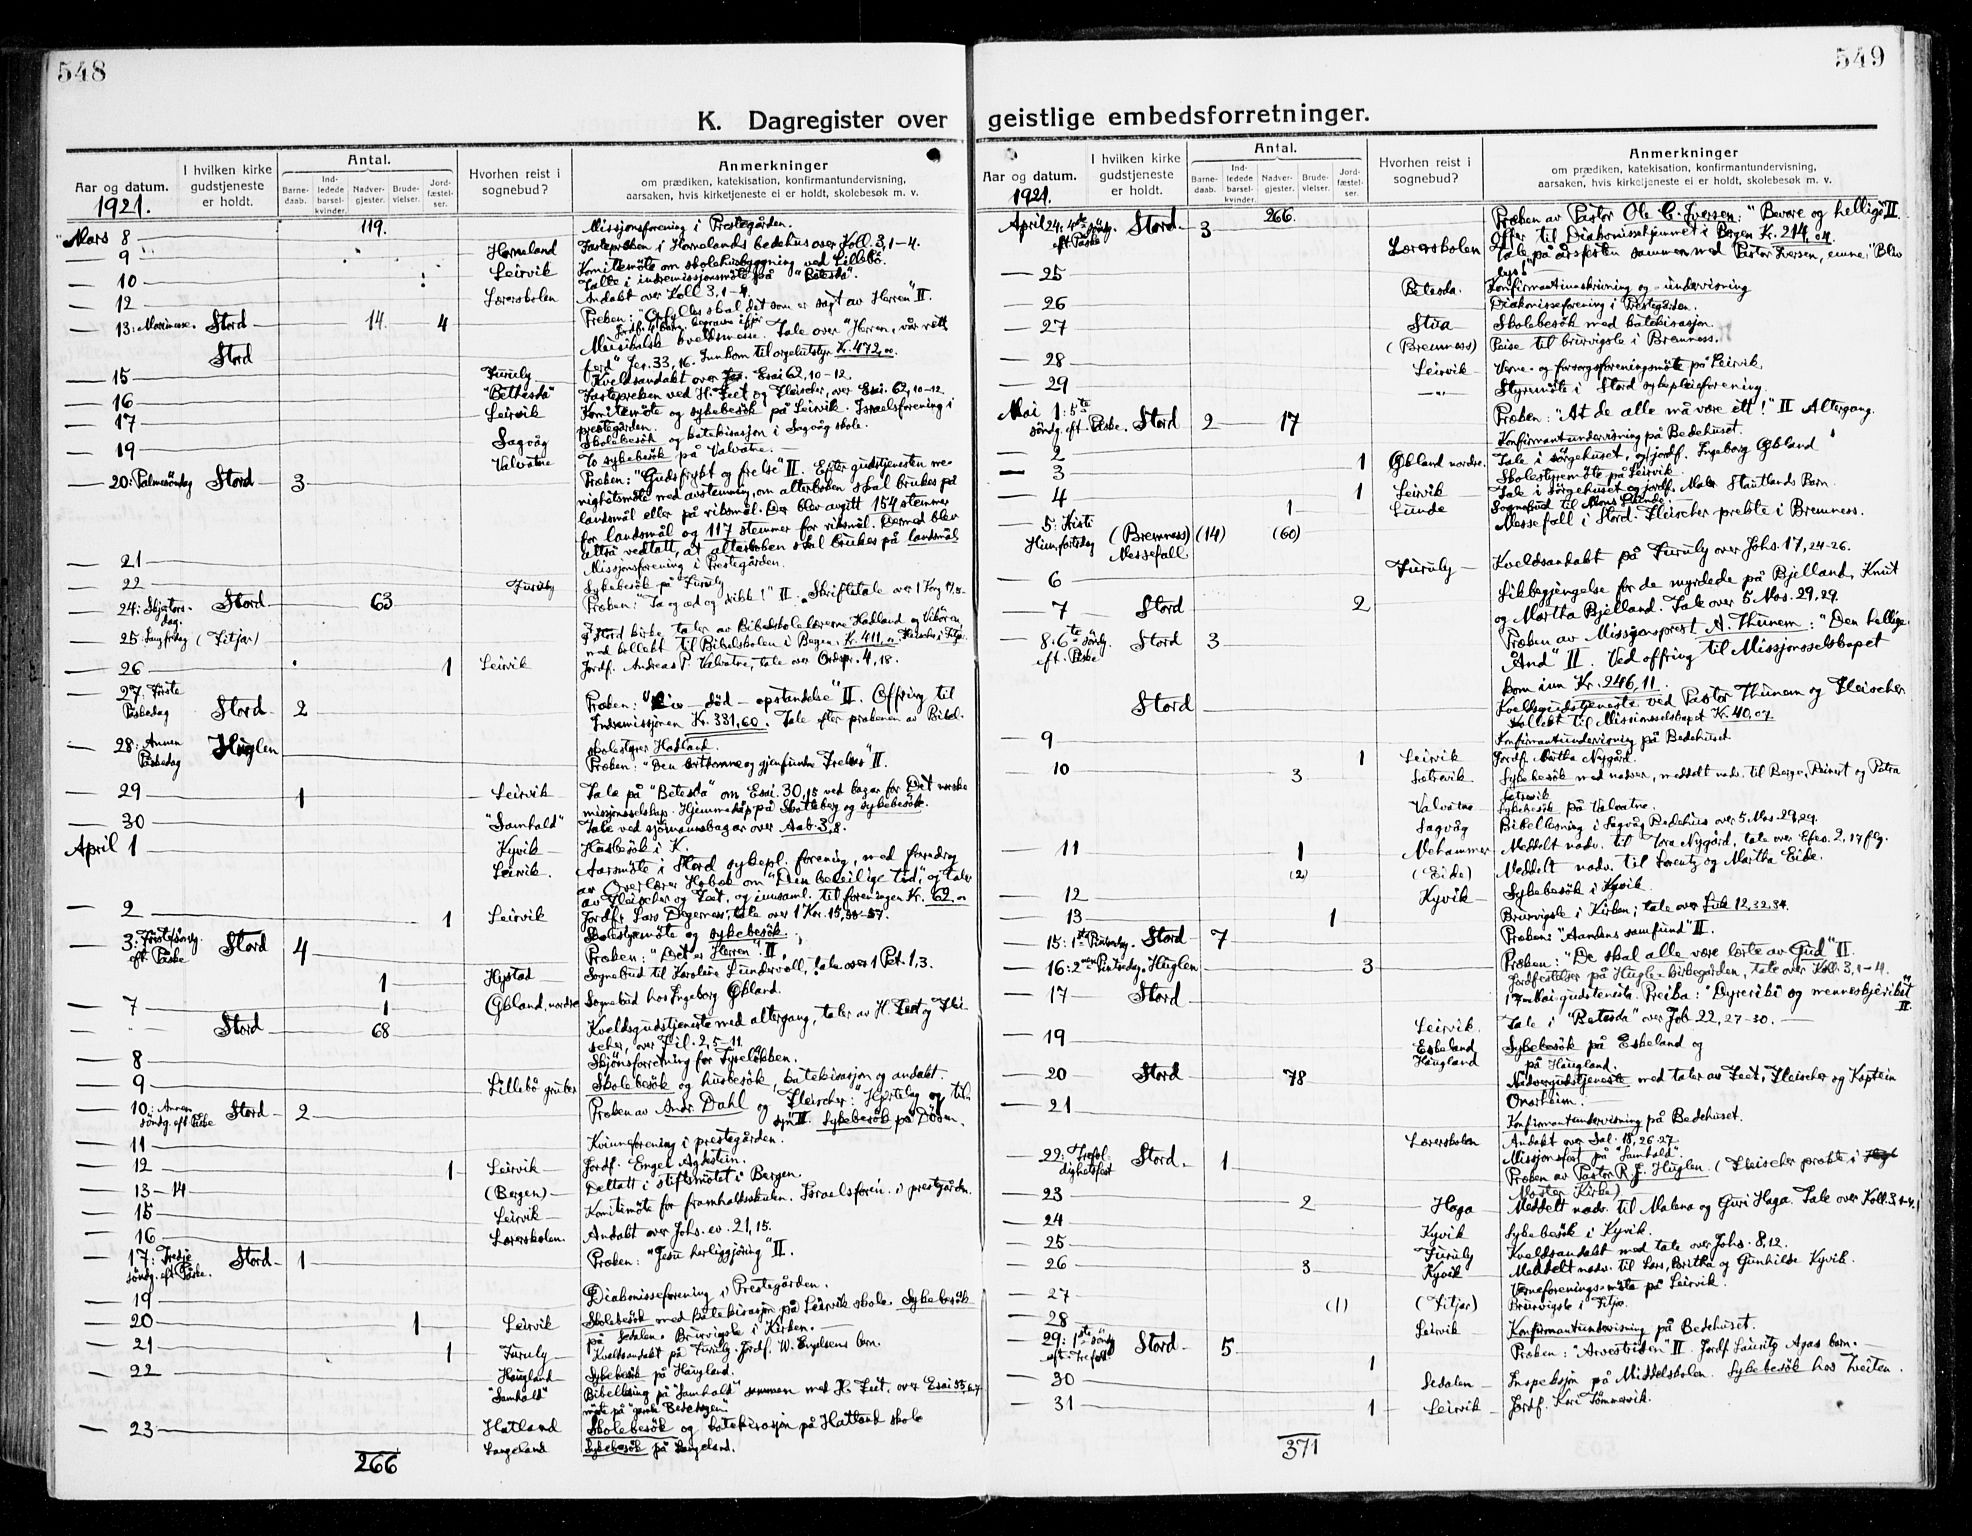 548
K. Dagregister over
Aar og datum.
I hvilken kirke gudstjeneste er holdt.
Antal.
Barnedaab.
Indledede barselkvinder.
Nadvergjester.
Brudevielser.
Jordfæstelser.
Hvorhen reist i sognebud?
Anmerkninger
om prædiken, katekisation, konfirmantundervisning,
aarsaken, hvis kirketjeneste ei er holdt, skolebesøk m. v.
1921.
119.
Mars 8 Missjonsforening i Prestegården.
9 Horneland Fastepreken i Hornelands bedehus over Koll. 3, 1-4.
10 Leirvik Komitemöte om skolehusbygging ved Lillebö.
Talte i indremissjonsmöte på "Betesda".
12 Lærerskolen Andakt over Koll 3, 1-4.
13: Marimesse. Stord 14 4 Preken: "Opfylles skal det som er sagt av Herren" II.
Stord Musikalsk kveldsmesse. Tale over "Herren, vår rett
ferd" Jer. 33, 16. Innkom til orgelutstyr Kr. 472,00.
15 Furuly Kveldsandakt over Esai 62, 10-12
16 "Bethesda" Fastepreken ved H. Leet og Fleischer, over Esai. 62, 10-12
17 Leirvik Komitemöte og sykebesök på Leirvik. Israelsforening i
prestegården.
19 Sagvåg Skolebesök og katekisasjon i Sagvåg skole.
Valvatne To sykebesök på Valvatne.
20: Palmesöndag Stord 3 Preken: "Gudsfrykt og frelse" II. Efter gudstjenesten me-
nighetsmöte med avstemning, om alterboken skal brukes på
landsmål eller på riksmål. Der blev avgitt 154 stemmer
for landsmål og 117 stemmer for riksmål. Dermed blev
altså vedtatt, at alterboken skal brukes på landsmål
21 Missjonsforening i Prestegården.
22 Furuly Sykebesök på Furuly
24: Skjærtors-
dag. Stord 63 Preken: "Ta og æd og drikk!" II. Skriftetale over 1 Kong 17,
25 Langfredag (Fitjar) I Stord kirke taler av Bibelskolelærerne Hadland og
med kollekt til Bibelskolen i Bergen, Kr. 411,
26 1 Leirvik Jordf. Andreas P. Valvatne, tale over Ordspr. 4, 18.
27: Förste
Påskedag Stord 2 Preken: "Liv - död - opstandelse" II. Offring til
Indremissjonen Kr. 331,60. Tale efter prekenen av Bibel-
skolestyrer Hadland.
28: Annen
Påskedag Huglen Preken: "Den bortkomne og gjenfundne Frelser" II.
29 1 Leirvik Tale på "Betesda" om Esai. 30, 15 ved bazar for Det norske
missjonsselskap. Hjemmedåp på Skotteberg og sykebesök.
30 "Samhald" Tale ved sjömannsbazar over Aab. 3, 8.
April 1 Kyvik Husbesök i K.
Leirvik. Aarsmöte i Stord sykepl. forening, med foredrag
av Overlærer Hobak om "Den beleilige tid", og taler
av Fleischer og Leet, og innsaml. til foreningen Kr. 62,
2 1 Leirvik Jordf. Lars Digernes, tale over 1 Kor. 15, 55-57.
Skolestyremöte og sykebesök.
3: Förste söndg.
eft. Påske Stord 4 Preken: "Det er Herren" II.
1 Hystad Sognebud til Karoline Lundervoll, tale over 1 Pet. 1, 3.
7 1 Økland, nordre Sognebud hos Ingeborg Økland.
Stord 68 Kveldsgudstjeneste med altergang, taler av H. Leet og Flei-
scher, over Fil. 2, 5-11.
8 Skjönsforretning for Tyseløkken.
9 Lillebö gruber Skolebesök og husbesök, katekisasjon og andakt.
10: Annen
söndg. eft. Påske Stord 2 Preken av Andr. Dahl og Fleischer: "Hyrtelag og til-
syn" II. Sykebesök på Døsen.
11 Kvinneforening i prestegården.
12 1 Leirvik Jordf. Engel Agdestein.
13-14 (Bergen) Deltatt i stiftsmötet i Bergen.
15 Leirvik Komitemöte for framhaldsskulen. Israelsforen. i prestgården.
16 Lærerskolen. Andakt over Johs. ev. 21, 15.
17: Tredje
söndg. eft. Påske. Stord 1 Preken: "Jesu herliggjöring" II.
19 Diakonisseforening i Prestegården.
20 1 Leirvik Skolebesök med katekisasjon på Leirvik skole. Sykebesök
på Sedalen. Brurvigsle i Kirken.
21 1 Furuly Kveldsandakt på Furuly. Jordf. W. Engelsens barn.
22 Haugland Sykebesök på Haugland.
"Samhald" Bibellesing på "Samhald" sammen med H. Leet, over Esai 55, 6-7
23 Hatland Skolebesök og katekisasjon på Hatland skole
Langeland Sykebesök på Langeland.
266
549
geistlige embedsforretninger.
Aar og datum.
I hvilken kirke gudstjeneste er holdt.
Antal.
Barnedaab.
Indledede barselkvinder.
Nadvergjester.
Brudevielser.
Jordfæstelser.
Hvorhen reist i sognebud?
Anmerkninger
om prædiken, katekisation, konfirmantundervisning,
aarsaken, hvis kirketjeneste ei er holdt, skolebesøk m. v.
1921.
266.
April 24: 4de söndg.
eft. Påske Stord 3 Preken av Pastor Ole C. Iversen: "Bevare og hellige" II
Offer til Diakonissehjemmet i Bergen Kr. 214,04.
Lærerskolen Tale på årsfesten sammen med Pastor Iversen, emne: "Bliv
lys!"
25 Betesda. Konfirmantinnskrivning og -undervisning
26 Diakonisseforening i Prestegården.
27 Stua Skolebesök med katekisasjon.
(Bremness) Reise til brurvigsle i Bremness.
28 Leirvik Verne- og forsorgsforeningsmöte på Leirvik.
29 -"- Styremöte i Stord sykepleieforening.
Mai 1: 5te
söndg. eft. Påske. Stord 2 17 Preken: "At de alle må være ett!" II Altergang.
2 Konfirmantundervisning på Bedehuset.
3 1 Økland nordre. Tale i sörgehuset, og jordf. Ingeborg Økland
Skolestyremöte på Leirvik
4 1 Leirvik Tale i Sörgehuset og jordf. Maler Stautlands Barn.
1 Lunde Sognebud til Mons Lunde.
5: Kristi
Himmfartsdag (Bremness) (14) (60) Messefall i Stord. Fleischer prekte i Bremness.
Messefall
6 Furuly Kveldsandakt på Furuly over Johs. 17, 24-26.
7 Stord 2 Likbegjengelse for de myrdede på Bjelland, Knut
og Martha Bjelland. Tale over 5 Mos. 29, 29.
8: 6te söndg.
eft. Påske Stord 3 Preken av Missjonsprest A. Thunem: "Den hellige
Ånd" II. Ved offring til Missjonsselskapet
kom inn Kr. 246,11.
Stord Kveldsgudstjeneste ved Pastor Thunem og Fleischer
Kollekt til Missionsselskapet Kr. 40,07.
9 Konfirmantundervisning på Bedehuset
10 1 Leirvik Jordf. Martha Nygård.
3 Sætrevik Sykebesök med nadver, meddelt nadv. til Berge, Reinert og Petra
Sætrevik
Valvatne Sykebesök på Valvatne.
Sagvåg Bibellesning i Sagvåg Bedehus over 5. Mos. 29, 29.
11 1 Mehammer Meddelt nadv. til Tora Nygård, tale over Efes. 2, 17 flg.
(2) (Eide) Meddelt nadv. til Lorentz og Martha Eide.
12 Kyvik Sykebesök i Kyvik.
13 1 Brurvigsle i Kirken; tale over Luk 12, 32. 34.
15: 1ste Pinsedag. Stord 7 Preken: "Aandens samfund" II.
16: 2nen Pinsedag. Huglen 3 Preken: "De skal alle være lærte av Gud" II.
Jordfestelser på Hugle-kirkegården, tale over Koll. 3, 1-4.
17 Stord 17 Mai gudsteneste. Preika: "Dyreriki og menneskjeriket"
II.
19 Leirvik. Tale i "Betesda" over Job 22, 27-30.
Eskeland Sykebesök på Eskeland og
Haugland på Haugland.
20 Stord 78 Nadvergudstjeneste med taler av Leet, Fleischer og Kaptein
Onarheim.
21 Konfirmantundervisning på Bedehuset.
Lærerskolen Andakt over Sal. 18, 26-27.
Missjonsfest på "Samhald".
22: Trefol-
dighetsfest Stord. 1 Preken av Pastor R. J. Huglen. (Fleischer prekte i
Moster Kirke)
23 2 Haga Meddelt nadv. til Malena og Guri Haga. Tale over Koll. 3, 1-4.
24 Kyvik Sykebesök i Kyvik.
25 Furuly Kveldsandakt med tale over Johs. 8, 12.
26 3 Kyvik Meddelt nadv. til Lars, Britha og Gunhilde Kyvik.
Verneforenings-möte på Leirvik.
27 (1) (Fitjar) Brurvigsle i Fitjar.
28 Leirvik Konfirmantundervisning på Bedehuset.
29: 1ste söndg
eft. Trefold Stord 5 Preken: "Arvestriden" II. Jordf. Lauritz Agas barn.
1
30 Sedalen Inspeksjon på Middelskolen. Sykebesök hos Tveiten.
31 1 Leirvik Jordf. Kari Tömmervik.
371